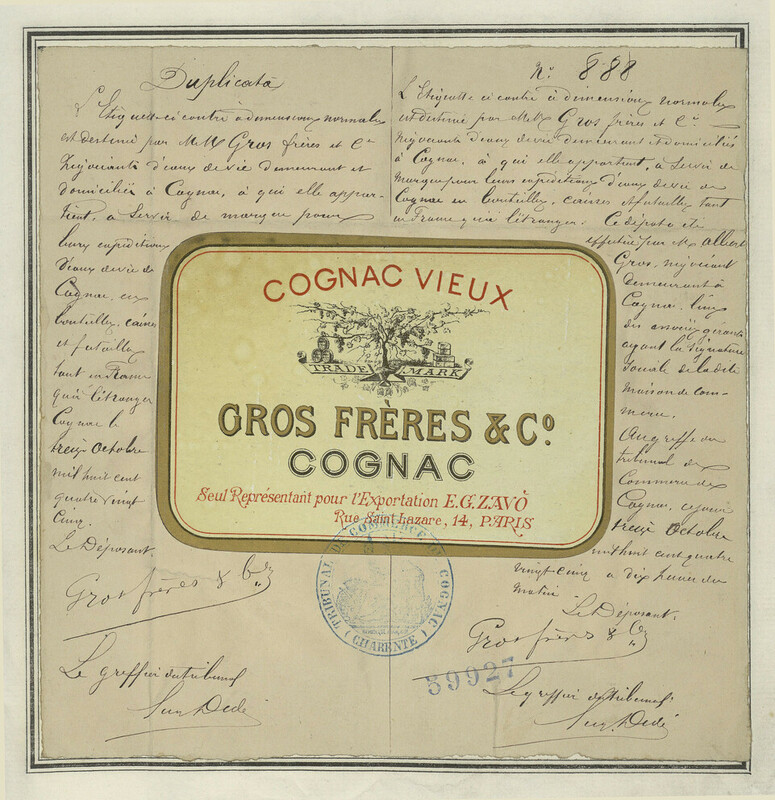 Duplicata
L'Etiquette ci contre à dimensions normales
est destiné par M.M. Gros frères et Cie
négociants d'eaux de vie demeurant et
domiciliés à Cognac, à qui elle appar-
tient, à servir de marque pour
leurs expéditions
d'eaux de vie de
Cognac, en
bouteilles, caisses
et futailles
tant en France
qu'à l'étranger
Cognac le
treize Octobre
mil huit cent
quatre vingt
cinq.
Le Déposant.
Gros frères & Cie
Le greffier du tribunal
No 888
L'Etiquette ci contre à dimensions normales
est destiné par M.M. Gros frères et Cie
négociants d'eaux de vie demeurant et domiciliés
à Cognac, à qui elle appartient, à servir de
marque pour leurs expéditions d'eaux de vie de
Cognac en bouteilles, caisses et futailles tant
en France qu'à l'étranger. Ce dépôt a été
effectué par M. Albert
Gros, négociant
demeurant à
Cognac, l'un
des associés gérants
ayant la signature
sociale de la dite
maison de com-
merce.
Au greffe du
tribunal de
Commerce de
Cognac, ce jour
treize Octobre
mil huit cent quatre
vingt cinq à dix heures du
matin.
Le Déposant.
Gros frères & Cie
Le greffier du tribunal
COGNAC VIEUX
TRADE MARK
GROS FRÈRES & Co
COGNAC
Seul Représentant pour l'Exportation E.G. ZAVÒ
Rue Saint Lazare, 14, PARIS
TRIBUNAL DE COMMERCE DE COGNAC
(CHARENTE)
39927